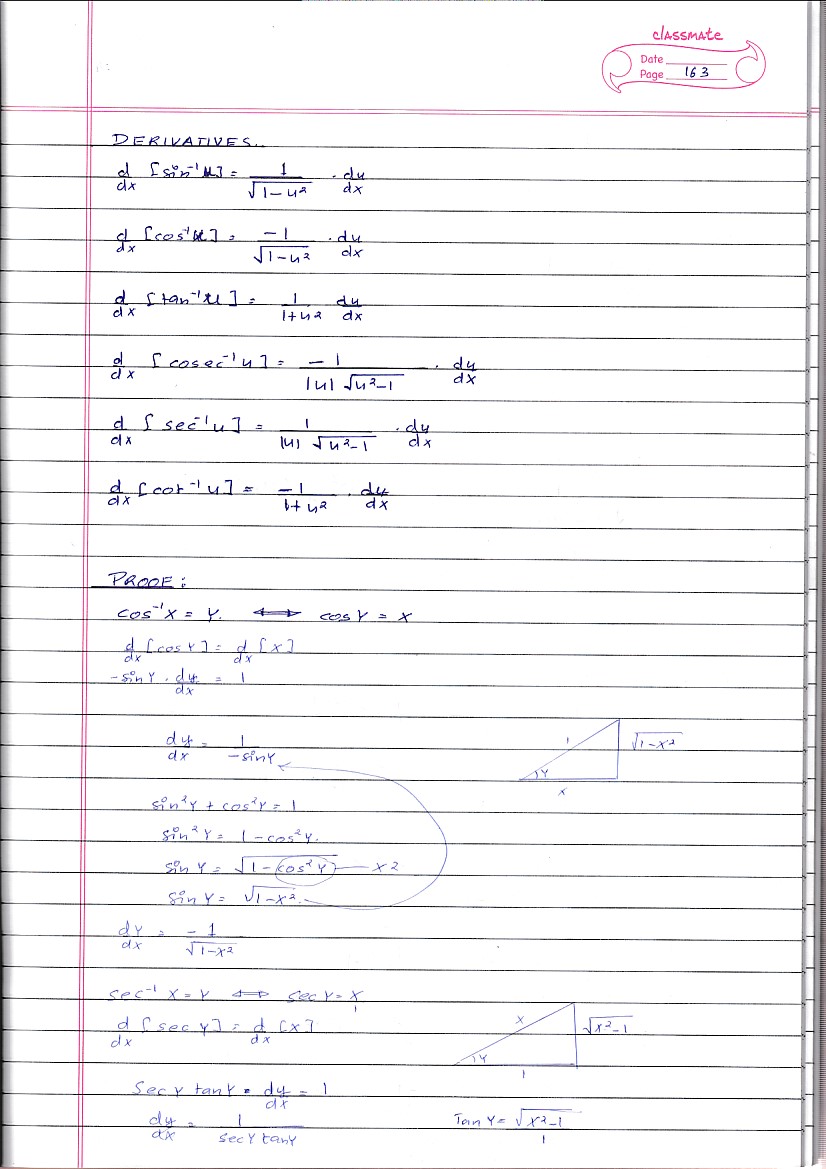 classmate
Date
Page 163
DERIVATIVES..
d/dx [sin⁻¹u] = 1/√(1-u²) · du/dx
d/dx [cos⁻¹u] = -1/√(1-u²) · du/dx
d/dx [tan⁻¹u] = 1/(1+u²) du/dx
d/dx [cosec⁻¹u] = -1/(|u| √(u²-1)) · du/dx
d/dx [sec⁻¹u] = 1/(|u| √(u²-1)) · du/dx
d/dx [cot⁻¹u] = -1/(1+u²) · du/dx
PROOF:
cos⁻¹x = Y. ⟺ cosY = x
d/dx [cosY] = d/dx [x]
-sinY · dy/dx = 1
dy/dx = 1/-sinY
1 √(1-x²) Y x
sin²Y + cos²Y = 1
sin²Y = 1-cos²Y.
sinY = √(1-cos²Y) — x2
sinY = √(1-x²)
dY/dx = -1/√(1-x²)
sec⁻¹ x = Y ⟺ secY = x/1
d/dx [secY] = d/dx [x]
x √(x²-1) Y 1
SecY tanY · dy/dx = 1
dy/dx = 1/(secY tanY)
TanY = √(x²-1)/1